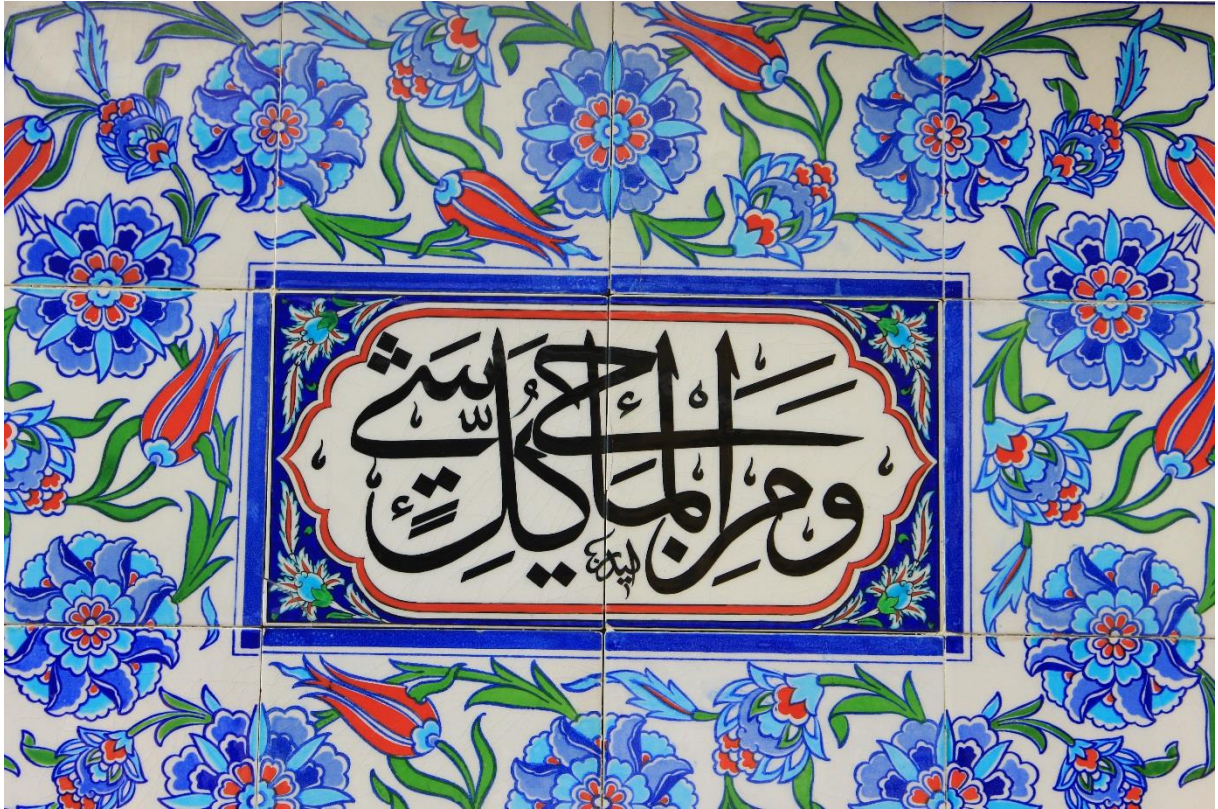 ومن الماء كل شيء حي